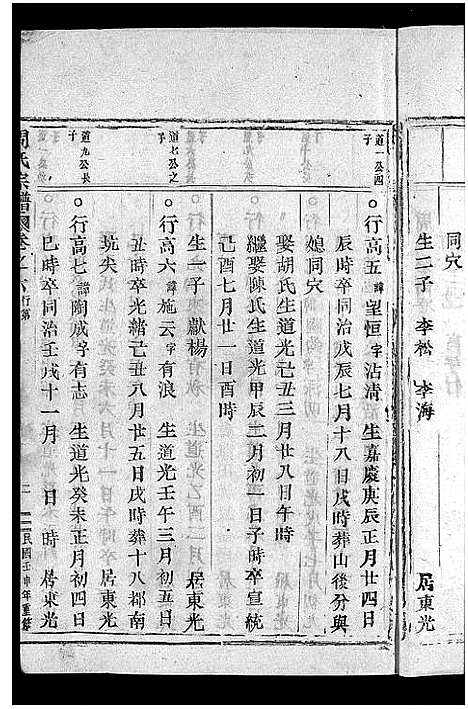 同穴
生二子　李松　李海　居東光
道一公四子
○行高五諱望恒字沾清　生嘉慶庚辰正月廿四日
辰時卒同治戊辰七月十八日戌時葬山後分與
媳同穴
娶胡氏生道光己丑三月廿八日午時
繼娶陳氏生道光甲辰二月初一日子時卒宣統
己酉七月廿一日酉時
生一子　獻楊　居東光
道七公之子
○行高六諱施云字有浪　生道光壬午三月初五日
丑時卒光緒己丑八月廿五日戌時葬十八都南
坑尖　居東光
道九公長子
○行高七諱陶成字有志　生道光癸未正月初四日
巳時卒同治壬戌十一月　日　時　居東光
周氏宗譜　卷之六　行第
二　民國壬申年重修